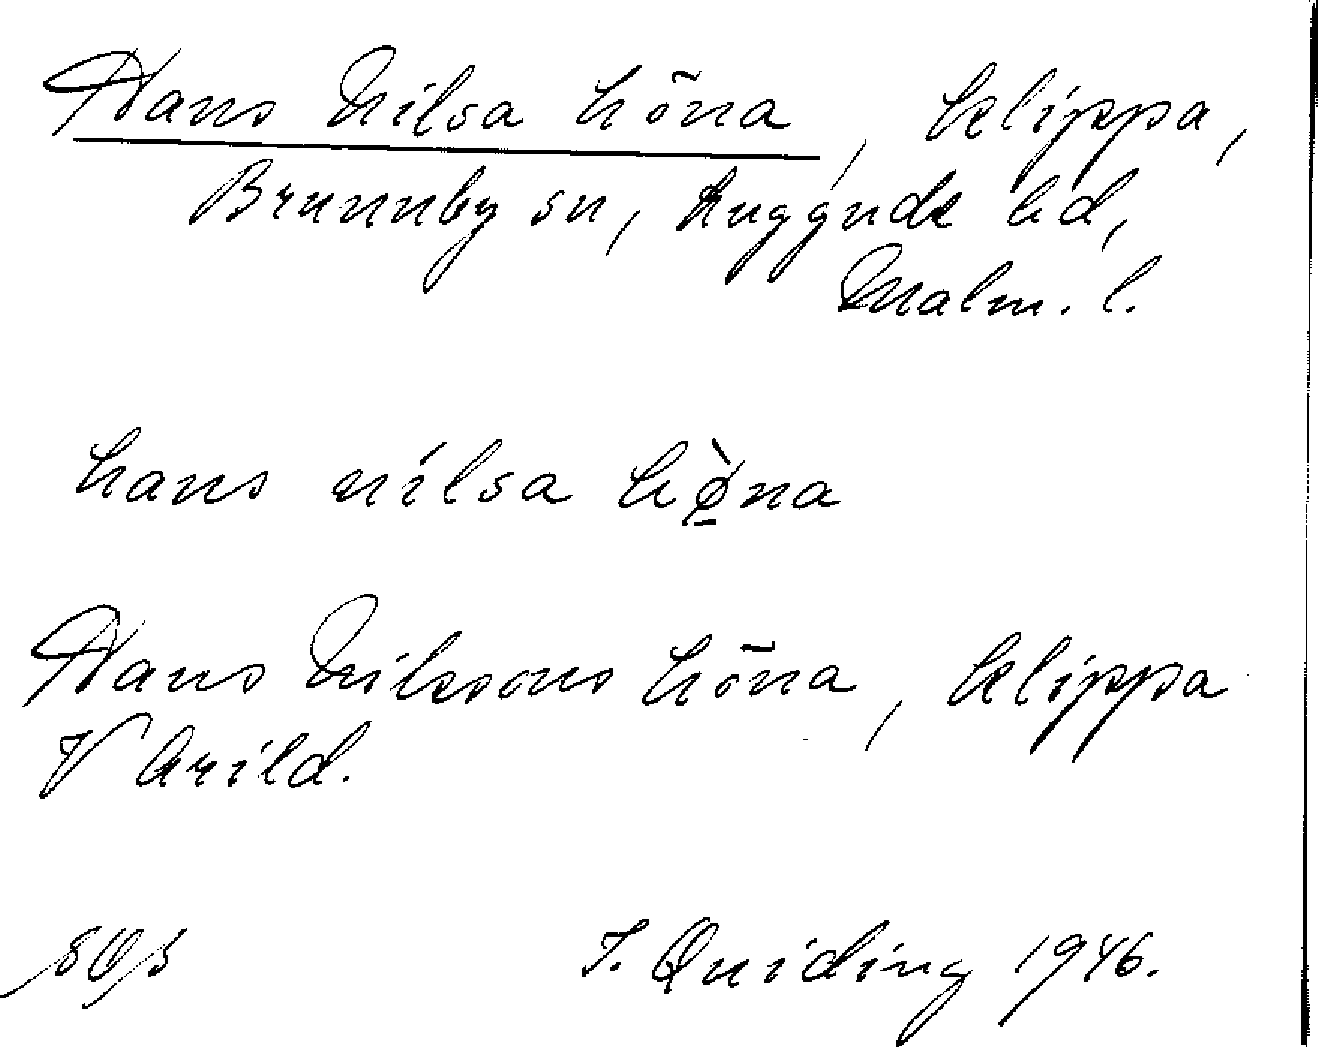 Hans Nilsa höna, klippa,
Brunnby sn, Luggude hd,
Malm. l.
hans nilsa hø̱̀na
Hans Nilssons höna, klippa
V Arild.
I. Quiding 1946.